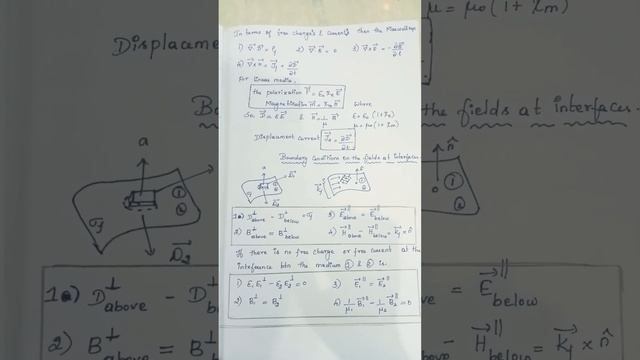 In terms of free charges & currents then the Maxwell eqn
1) ∇⃗·D⃗ = ρf 2) ∇⃗·B⃗ = 0 3) ∇⃗×E⃗ = -∂B⃗/∂t
4) ∇⃗×H⃗ = J⃗f + ∂D⃗/∂t
For linear media,
the polarization P⃗ = ε₀ χe E⃗
Magnetization M⃗ = χm H⃗ where
So, D⃗ = εE⃗ & H⃗ = 1/μ B⃗ ε = ε₀(1+χe)
μ = μ₀(1+χm)
Displacement current J⃗d = ∂D⃗/∂t
Boundary conditions on the fields at interfaces
a D⃗1 n̂
① ② σf D⃗2 K⃗f ① ②
1a) D⊥above - D⊥below = σf 3) E⃗∥above = E⃗∥below
2) B⊥above = B⊥below 4) H⃗∥above - H⃗∥below = K⃗f × n̂
If there is no free charge or free current at the
interface btn the medium ① & ② is
1) ε1 E1⊥ - ε2 E2⊥ = 0 3) E⃗1∥ = E⃗2∥
2) B1⊥ = B2⊥ 4) 1/μ1 B⃗1∥ - 1/μ2 B⃗2∥ = 0
μ = μ₀(1+χm)
Displacement
Bou
the fields at interfaces
a n̂
① ②
σf D⃗2
1a) D⊥above - D
= E⃗∥below
2) B⊥above = B
H⃗∥below = K⃗f × n̂